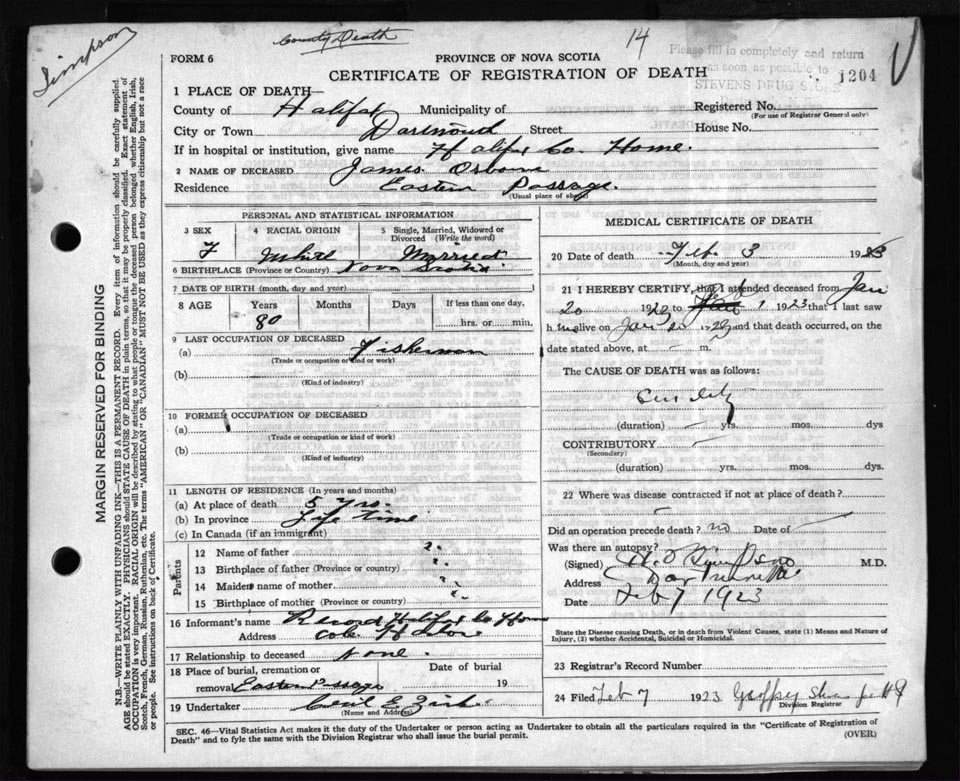 Simpson
County Death
14
Please fill in completely and return
as soon as possible to
STEVENS DRUG STORE
1204
FORM 6
PROVINCE OF NOVA SCOTIA
CERTIFICATE OF REGISTRATION OF DEATH
1 PLACE OF DEATH—
County of Halifax Municipality of
Registered No.
(For use of Registrar General only)
City or Town Dartmouth Street
House No.
If in hospital or institution, give name Halifax Co. Home.
2 NAME OF DECEASED James Osborn
Residence Eastern Passage.
(Usual place of abode)
PERSONAL AND STATISTICAL INFORMATION
3 SEX
4 RACIAL ORIGIN
5 Single, Married, Widowed or Divorced (Write the word)
White
Married
6 BIRTHPLACE (Province or Country) Nova Scotia
7 DATE OF BIRTH (month, day and year)
8 AGE
Years
Months
Days
If less than one day,
80
hrs. or min.
9 LAST OCCUPATION OF DECEASED
(a) Fisherman
(Trade or occupation or kind of work)
(b)
(Kind of industry)
10 FORMER OCCUPATION OF DECEASED
(a)
(Trade or occupation or kind of work)
(b)
(Kind of industry)
11 LENGTH OF RESIDENCE (In years and months)
(a) At place of death 5 yrs.
(b) In province Life time
(c) In Canada (if an immigrant)
Parents
12 Name of father ?
13 Birthplace of father (Province or country) ?
14 Maiden name of mother ?
15 Birthplace of mother (Province or country) ?
16 Informant's name Record Halifax Co Home
Address Cole Harbor
17 Relationship to deceased None.
18 Place of burial, cremation or removal Eastern Passage
Date of burial 19
19 Undertaker
(Name and Address)
MEDICAL CERTIFICATE OF DEATH
20 Date of death Feb. 3 1923
(Month, day and year)
21 I HEREBY CERTIFY, that I attended deceased from Jan
20 1923 to Feb 1 1923 that I last saw
h im alive on Jan 20 1923 and that death occurred, on the
date stated above, at — m.
The CAUSE OF DEATH was as follows:
Senility
(duration) — yrs. mos. dys
CONTRIBUTORY —
(Secondary)
(duration) yrs. mos. dys.
22 Where was disease contracted if not at place of death?
Did an operation precede death? no Date of —
Was there an autopsy?
(Signed) Simpson M.D.
Address Dartmouth
Date Feb 7 1923
State the Disease causing Death, or in death from Violent Causes, state (1) Means and Nature of Injury, (2) whether Accidental, Suicidal or Homicidal.
23 Registrar's Record Number
24 Filed Feb 7 1923
Division Registrar
SEC. 46—Vital Statistics Act makes it the duty of the Undertaker or person acting as Undertaker to obtain all the particulars required in the "Certificate of Registration of
Death" and to fyle the same with the Division Registrar who shall issue the burial permit.
(OVER)
MARGIN RESERVED FOR BINDING
N.B.—WRITE PLAINLY WITH UNFADING INK—THIS IS A PERMANENT RECORD. Every item of information should be carefully supplied.
AGE should be stated EXACTLY. PHYSICIANS should STATE CAUSE OF DEATH in plain terms, so that it may be properly classified. Exact statement of
OCCUPATION is very important. RACIAL ORIGIN will be described by stating to what people or tongue the deceased person belonged whether English, Irish,
Scotch, French, German, Russian, Ruthenian, etc. The terms "AMERICAN" OR "CANADIAN" MUST NOT BE USED as they express citizenship but not a race
or people. See instructions on back of Certificate.